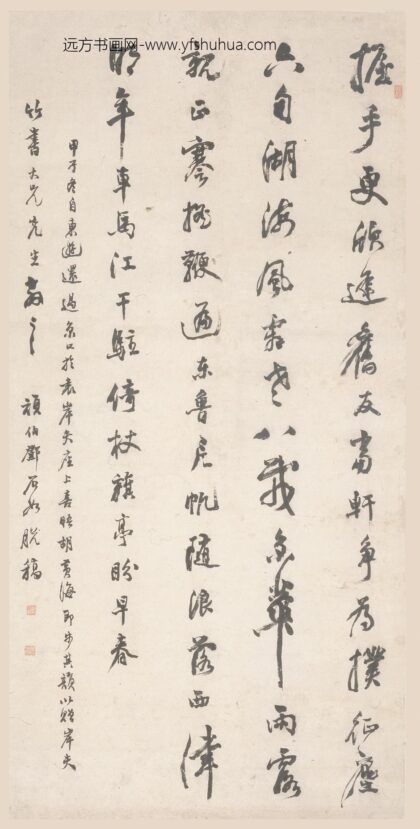 远方书画网-www.yfshuhua.com
握手更欣逢旧友当轩争为扑征尘
六旬湖海风霜老八载京华雨露
新正蹇摇鞭通东鲁居帆随浪落西津
明年车马江干驻倚杖旗亭盼早春
甲子冬自东游还过京口于袁岸夫座上喜晤胡黄海即步其韵以赠岸夫
竹书大兄先生教之 顽伯邓石如脱稿